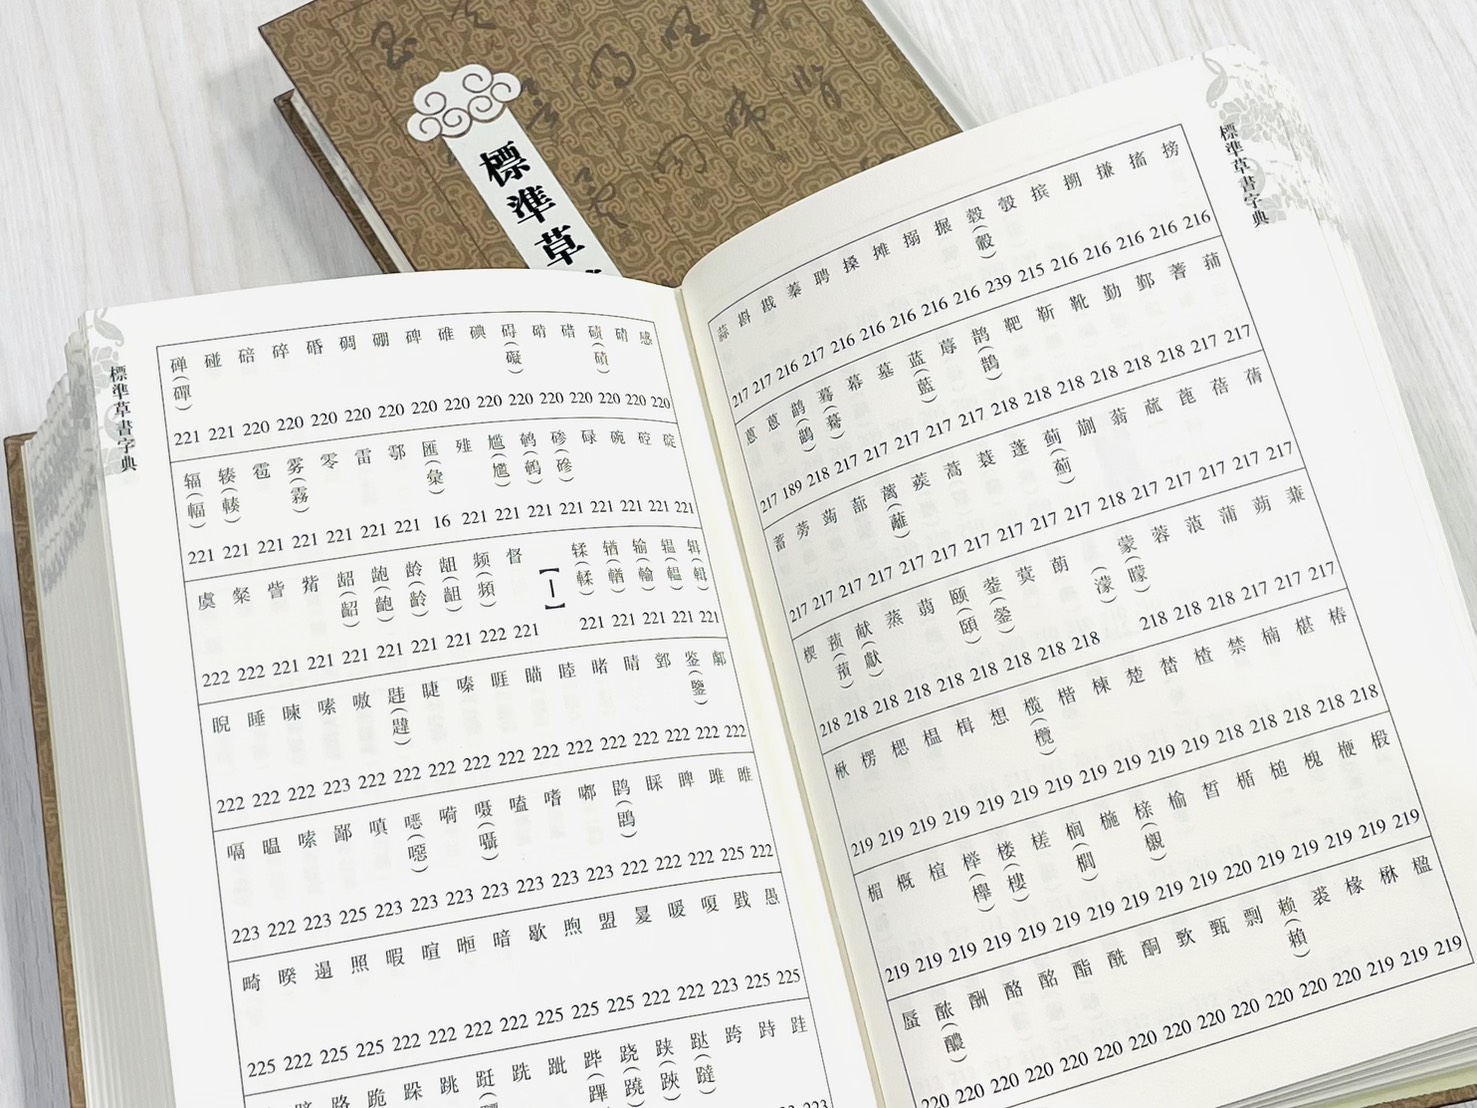 標準草
標準草書字典
搒 搐 搛 搠 摈 彀 毂(轂) 搌 搦 摊 搡 聘 蓁 戡 斟 蒜
216 216 216 216 216 215 239 216 216 216 216 216 217 216 217 217
蓍 鄞 勤 靴 靳 靶 鹊(鵲) 蓐 蓝(藍) 墓 幕 蓦(驀) 鹋(鶓) 蒽
217 217 218 218 218 218 218 218 217 217 217 217 217 218 189 217
蒨 蓓 蓖 蓏 蓊 蒯 蓟(薊) 蓬 蓑 蒿 蒺 蓠(蘺) 蔀 蒟 蒡 蓄
217 217 217 217 217 218 217 217 217 217 217 217 217 217 217 217
蒹 蒴 蒲 蒗 蓉 蒙(曚)(濛) 萌 蓂 蓥(鎣) 颐(頤) 蒻 蒸 献(獻) 蓣(蕷) 楔
217 217 217 218 218 218 218 218 218 218 218 218 218 218
椿 椹 楠 禁 楂 楚 楝 楷 榄(欖) 想 楫 榅 楒 楞 楸
218 218 218 218 218 219 219 219 219 219 219 219 219 219 219
椴 楩 槐 槌 楯 皙 榆 榇(櫬) 椸 榈(櫚) 槎 楼(樓) 榉(櫸) 楦 概 楣
219 219 219 219 219 220 219 219 219 219 219 219 219 219 219 219
楹 楙 椽 裘 赖(賴) 剽 甄 酮 酰 酯 酩 酪 酬 蜃
219 219 219 220 220 220 220 220 220 220 220 220 220 220 220
標準草書字典
感 碛(磧) 碍(礙) 碘 碓 碑 硼 碉 碎 碚 碰 䃅(磾)
220 220 220 220 220 220 220 220 220 220 220 220 220 220 221 221
碇 硿 碗 碌 碜(磣) 鹌(鵪) 尴(尷) 匯(彙) 鄠 雷 零 雾(霧) 雹 辏(輳) 辐(輻)
221 221 221 221 221 221 221 16 221 221 221 221 221 221 221
辑(輯) 辒(轀) 输(輸) 𬨎(輶) 𫐓(輮) 【丨】 督 频(頻) 龃(齟) 龄(齡) 龅(齙) 龆(齠) 觜 訾 粲 虞
221 221 221 221 221 221 222 221 221 221 221 221 221 222 222
鉴(鑒) 睛 睹 睦 瞄 睚 嗪 睫 韪(韙) 嗷 嗉 暕 睡 睨
222 222 222 222 222 222 222 222 222 222 222 222 223 222 222 222
睢 雎 睥 睬 嘟 嗜 嗑 嗫(囁) 嗬 嗔 鄙 嗦 嗢 嗝
222 225 222 222 222 223 223 223 223 223 223 223 225 223 222 223
愚 戥 嗄 暖 盟 煦 歇 暗 暅 暄 暇 照 遢 暌 畸
225 225 223 222 222 225 225 225 222 222 222 222 225 225 222 225
跬 跱 跨 跶(躂) 跷(蹺) 跸(蹕) 跐 跣 跳 跺 跪 路
223